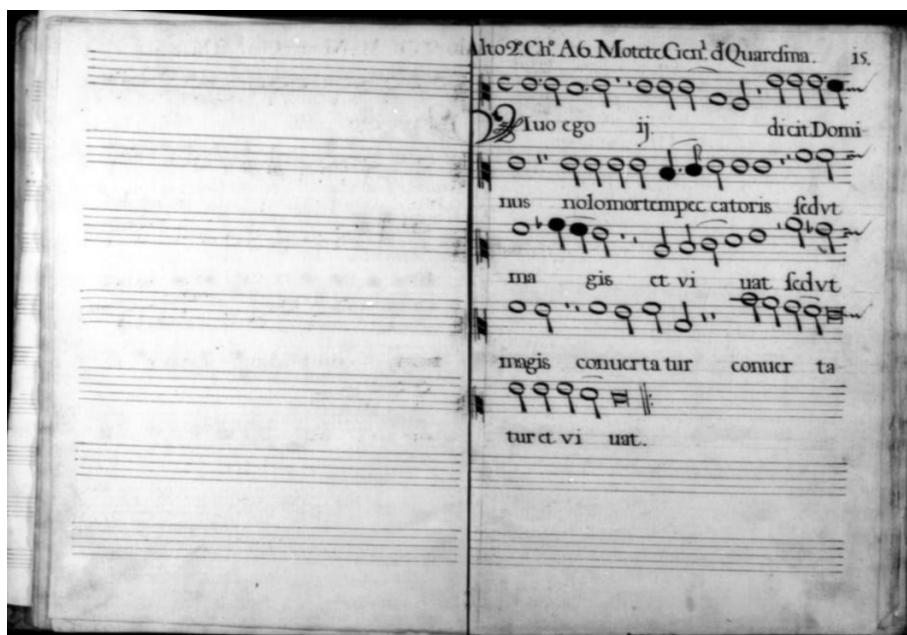 Alto 2º Chº. A6. Motete Genl. d Quaresma. 15.
Viuo ego ij. dicit Domi-
nus nolo mortem pec catoris sed vt
ma gis et vi uat sed vt
magis conuerta tur conuer ta-
tur et vi uat.